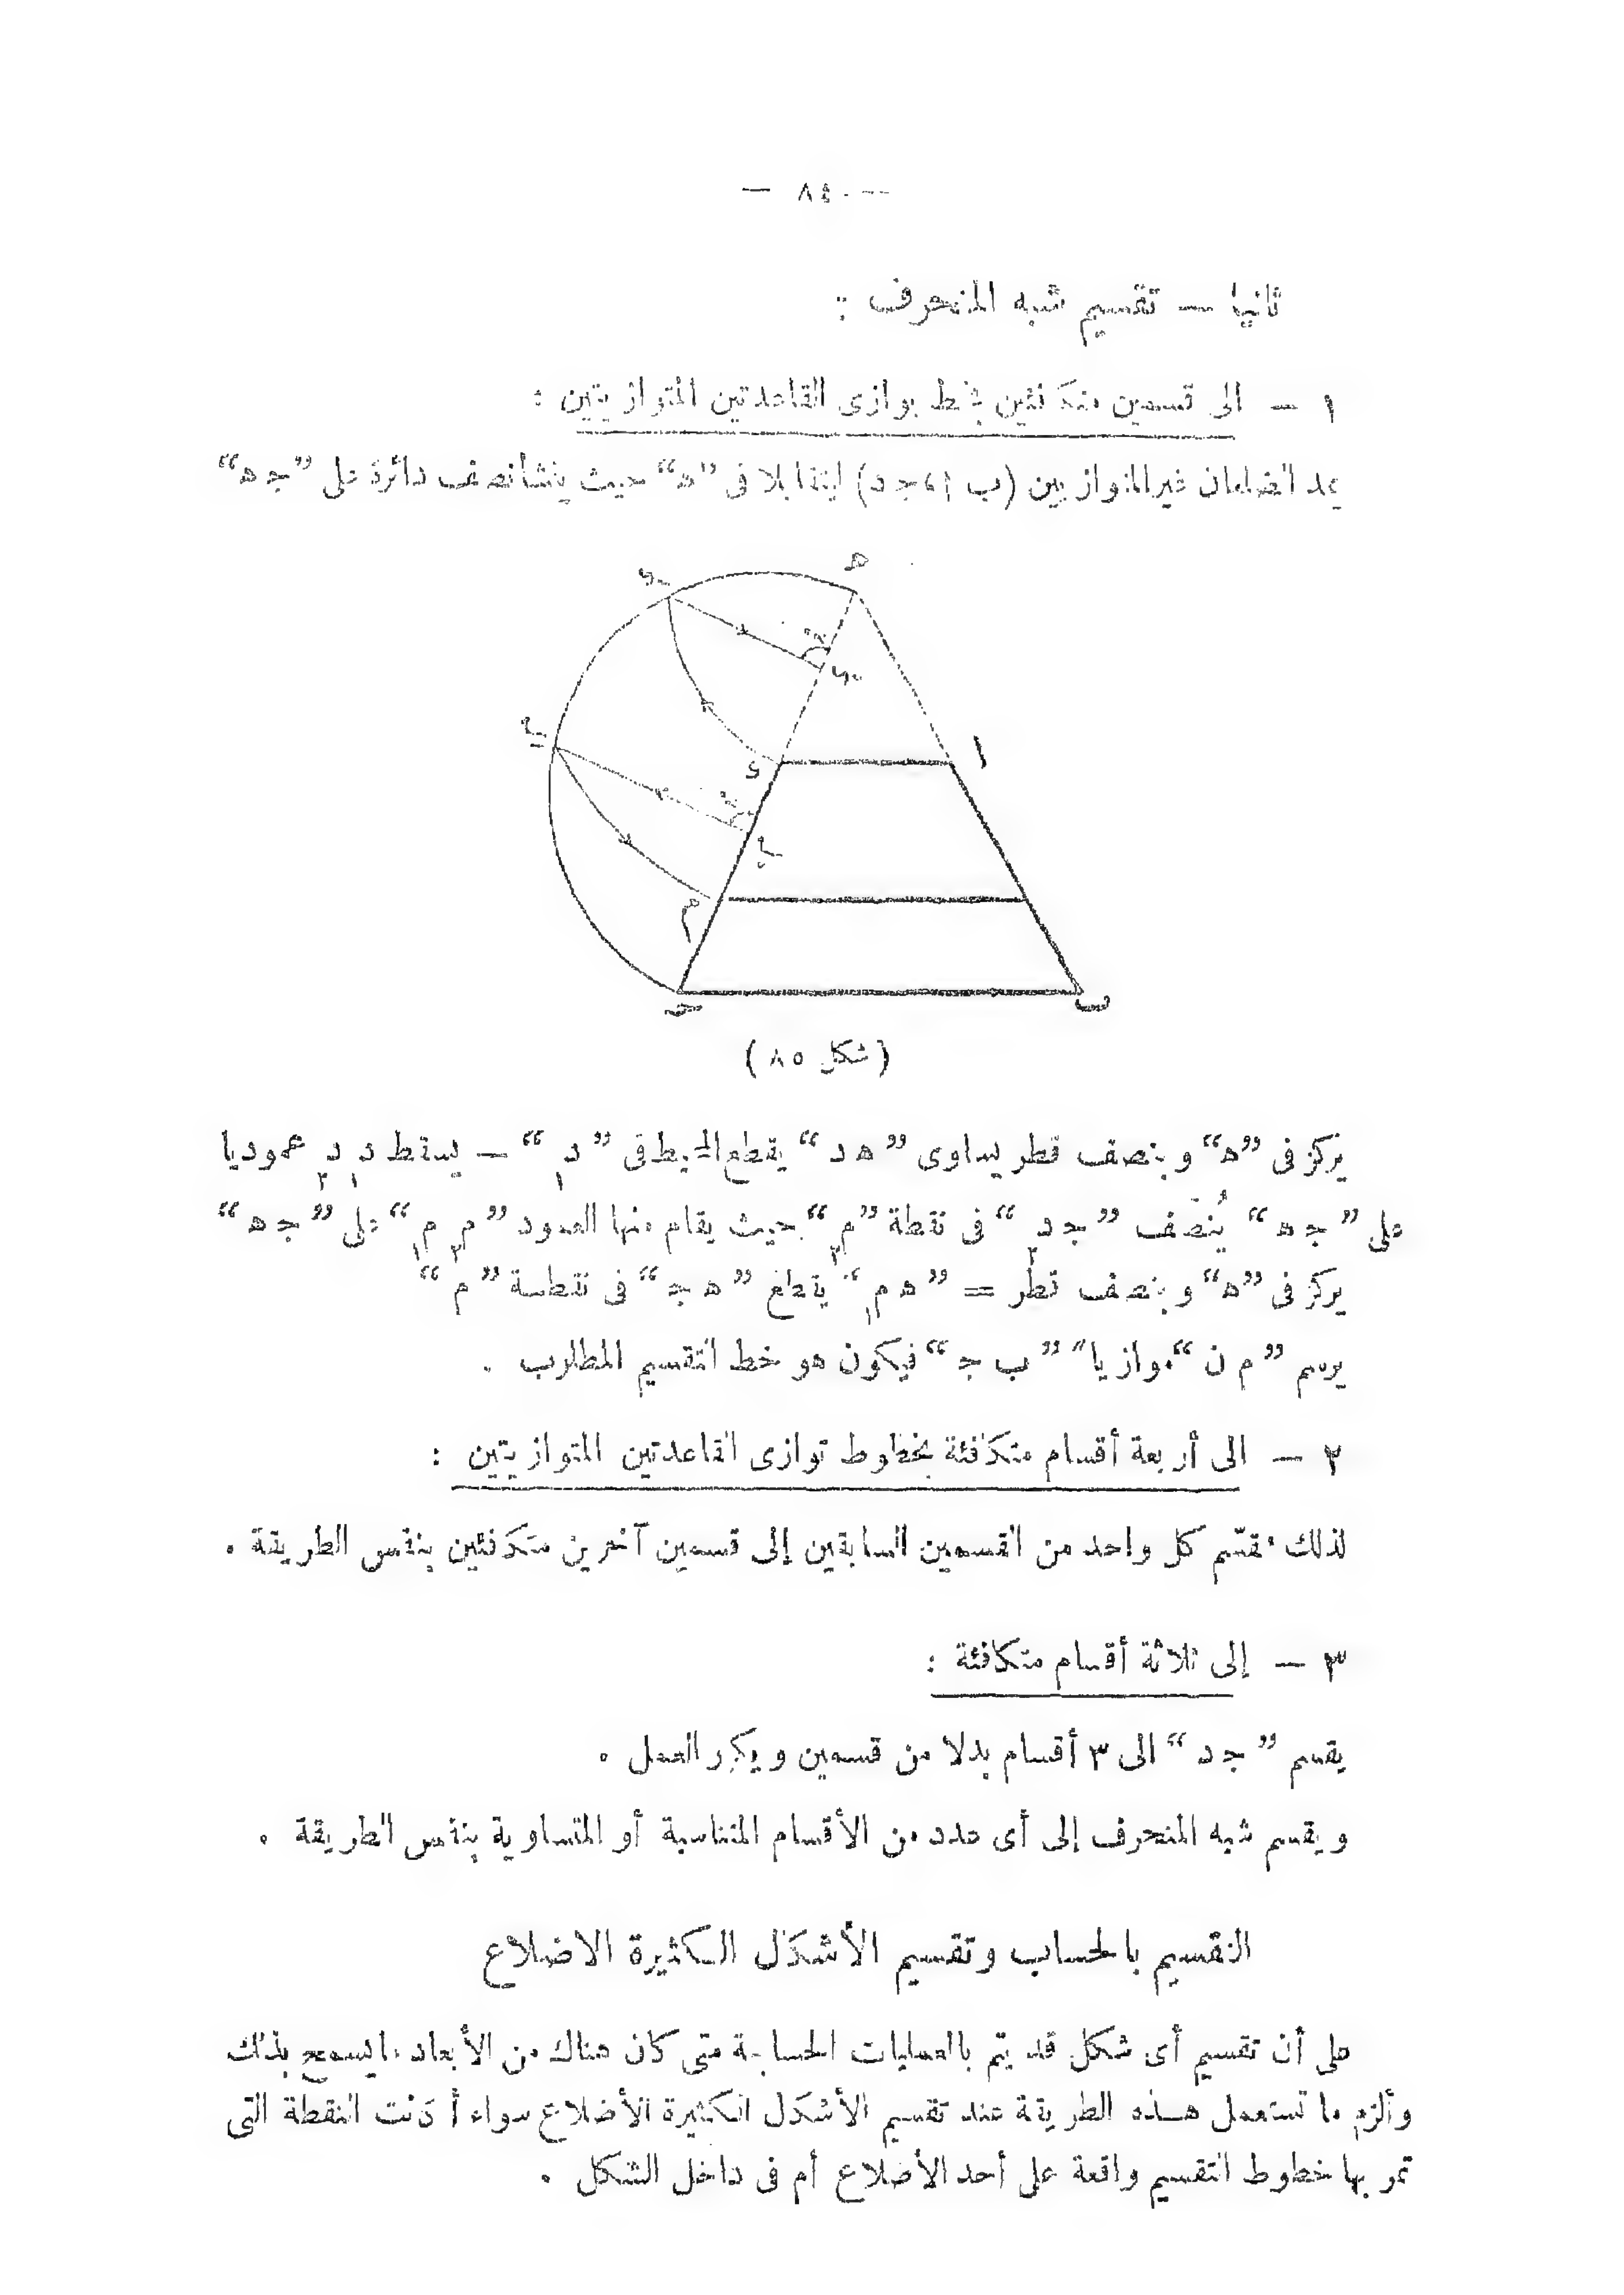 — ٨٤ —
ثانيا — تقسيم شبه المنحرف :
١ — الى قسمين متكافئين بخط يوازى القاعدتين المتوازيتين :
يمد الضلعان غير المتوازيين (ب ا ، جـ د) ليتقابلا فى ”هـ“ حيث ينشأ نصف دائرة على ”جـ هـ“
هـ
د₁
٩٠
د₂
ا
م₁
د
٩٠
م₂
م
جـ
ب
(شكل ٨٥)
يركز فى ”هـ“ وبنصف قطر يساوى ”هـ د“ يقطع المحيط فى ”د₁“ — يسقط د₁ د₂ عموديا
على ”جـ هـ“ يُنصّف ”جـ د₂“ فى نقطة ”م₂“ حيث يقام منها العمود ”م₂ م₁“ على ”جـ هـ“
يركز فى ”هـ“ وبنصف قطر = ”هـ م₁“ يقطع ”هـ جـ“ فى نقطة ”م“
يرسم ”م ن“ موازيا ”ب جـ“ فيكون هو خط التقسيم المطلوب .
٢ — الى أربعة أقسام متكافئة بخطوط توازى القاعدتين المتوازيتين :
لذلك نقسّم كل واحد من القسمين السابقين إلى قسمين آخرين متكافئين بنفس الطريقة .
٣ — إلى ثلاثة أقسام متكافئة :
يقسم ”جـ د“ الى ٣ أقسام بدلا من قسمين ويكرر العمل .
ويقسم شبه المنحرف إلى أى عدد من الأقسام المتناسبة أو المتساوية بنفس الطريقة .
التقسيم بالحساب وتقسيم الأشكال الكثيرة الاضلاع
على أن تقسيم أى شكل قد يتم بالعمليات الحسابية متى كان هناك من الأبعاد ما يسمح بذلك
وألزم ما تستعمل هذه الطريقة عند تقسيم الأشكال الكثيرة الأضلاع سواء أكانت النقطة التى
تمر بها خطوط التقسيم واقعة على أحد الأضلاع أم فى داخل الشكل .